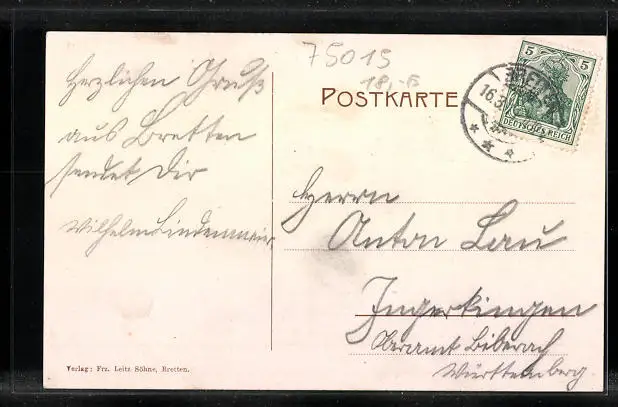 75015
18,-
POSTKARTE
5 5
DEUTSCHES REICH
16.3
Herzlichen Gruß
aus Bretten
sendet Dir
Wilhelm Lindenmaier
Herrn
Anton Lau
Ingerkingen
Oberamt Biberach
Württemberg.
Verlag: Frz. Leitz Söhne, Bretten.